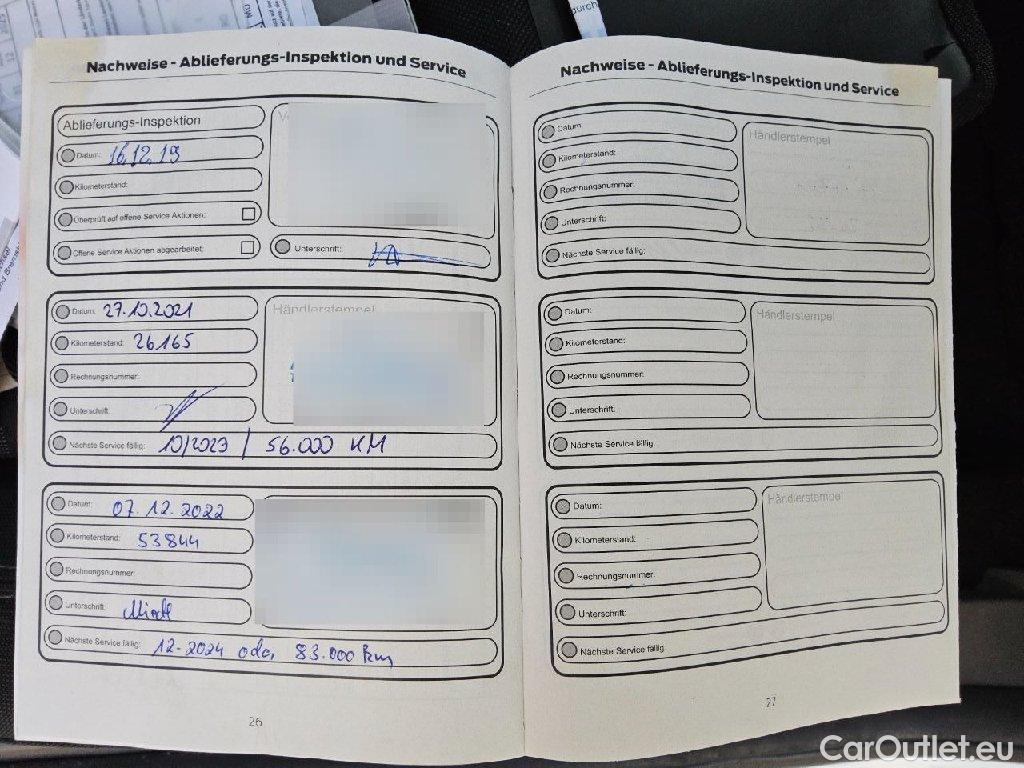 durch
Nachweise - Ablieferungs-Inspektion und Service
Ablieferungs-Inspektion
Datum: 16.12.19
Kilometerstand:
Überprüft auf offene Service Aktionen:
Offene Service Aktionen abgearbeitet:
Unterschrift:
Datum: 27.10.2021
Händlerstempel
Kilometerstand: 26165
Rechnungsnummer:
Unterschrift:
Nächste Service fällig: 10/2023 / 56.000 KM
Datum: 07.12.2022
Kilometerstand: 53844
Rechnungsnummer:
Unterschrift:
Nächste Service fällig: 12-2024 oder 83.000 km
26
Nachweise - Ablieferungs-Inspektion und Service
Datum:
Händlerstempel
Kilometerstand:
Rechnungsnummer:
Unterschrift:
Nächste Service fällig:
Datum:
Händlerstempel
Kilometerstand:
Rechnungsnummer:
Unterschrift:
Nächste Service fällig:
Datum:
Händlerstempel
Kilometerstand:
Rechnungsnummer:
Unterschrift:
Nächste Service fällig:
27
CarOutlet.eu